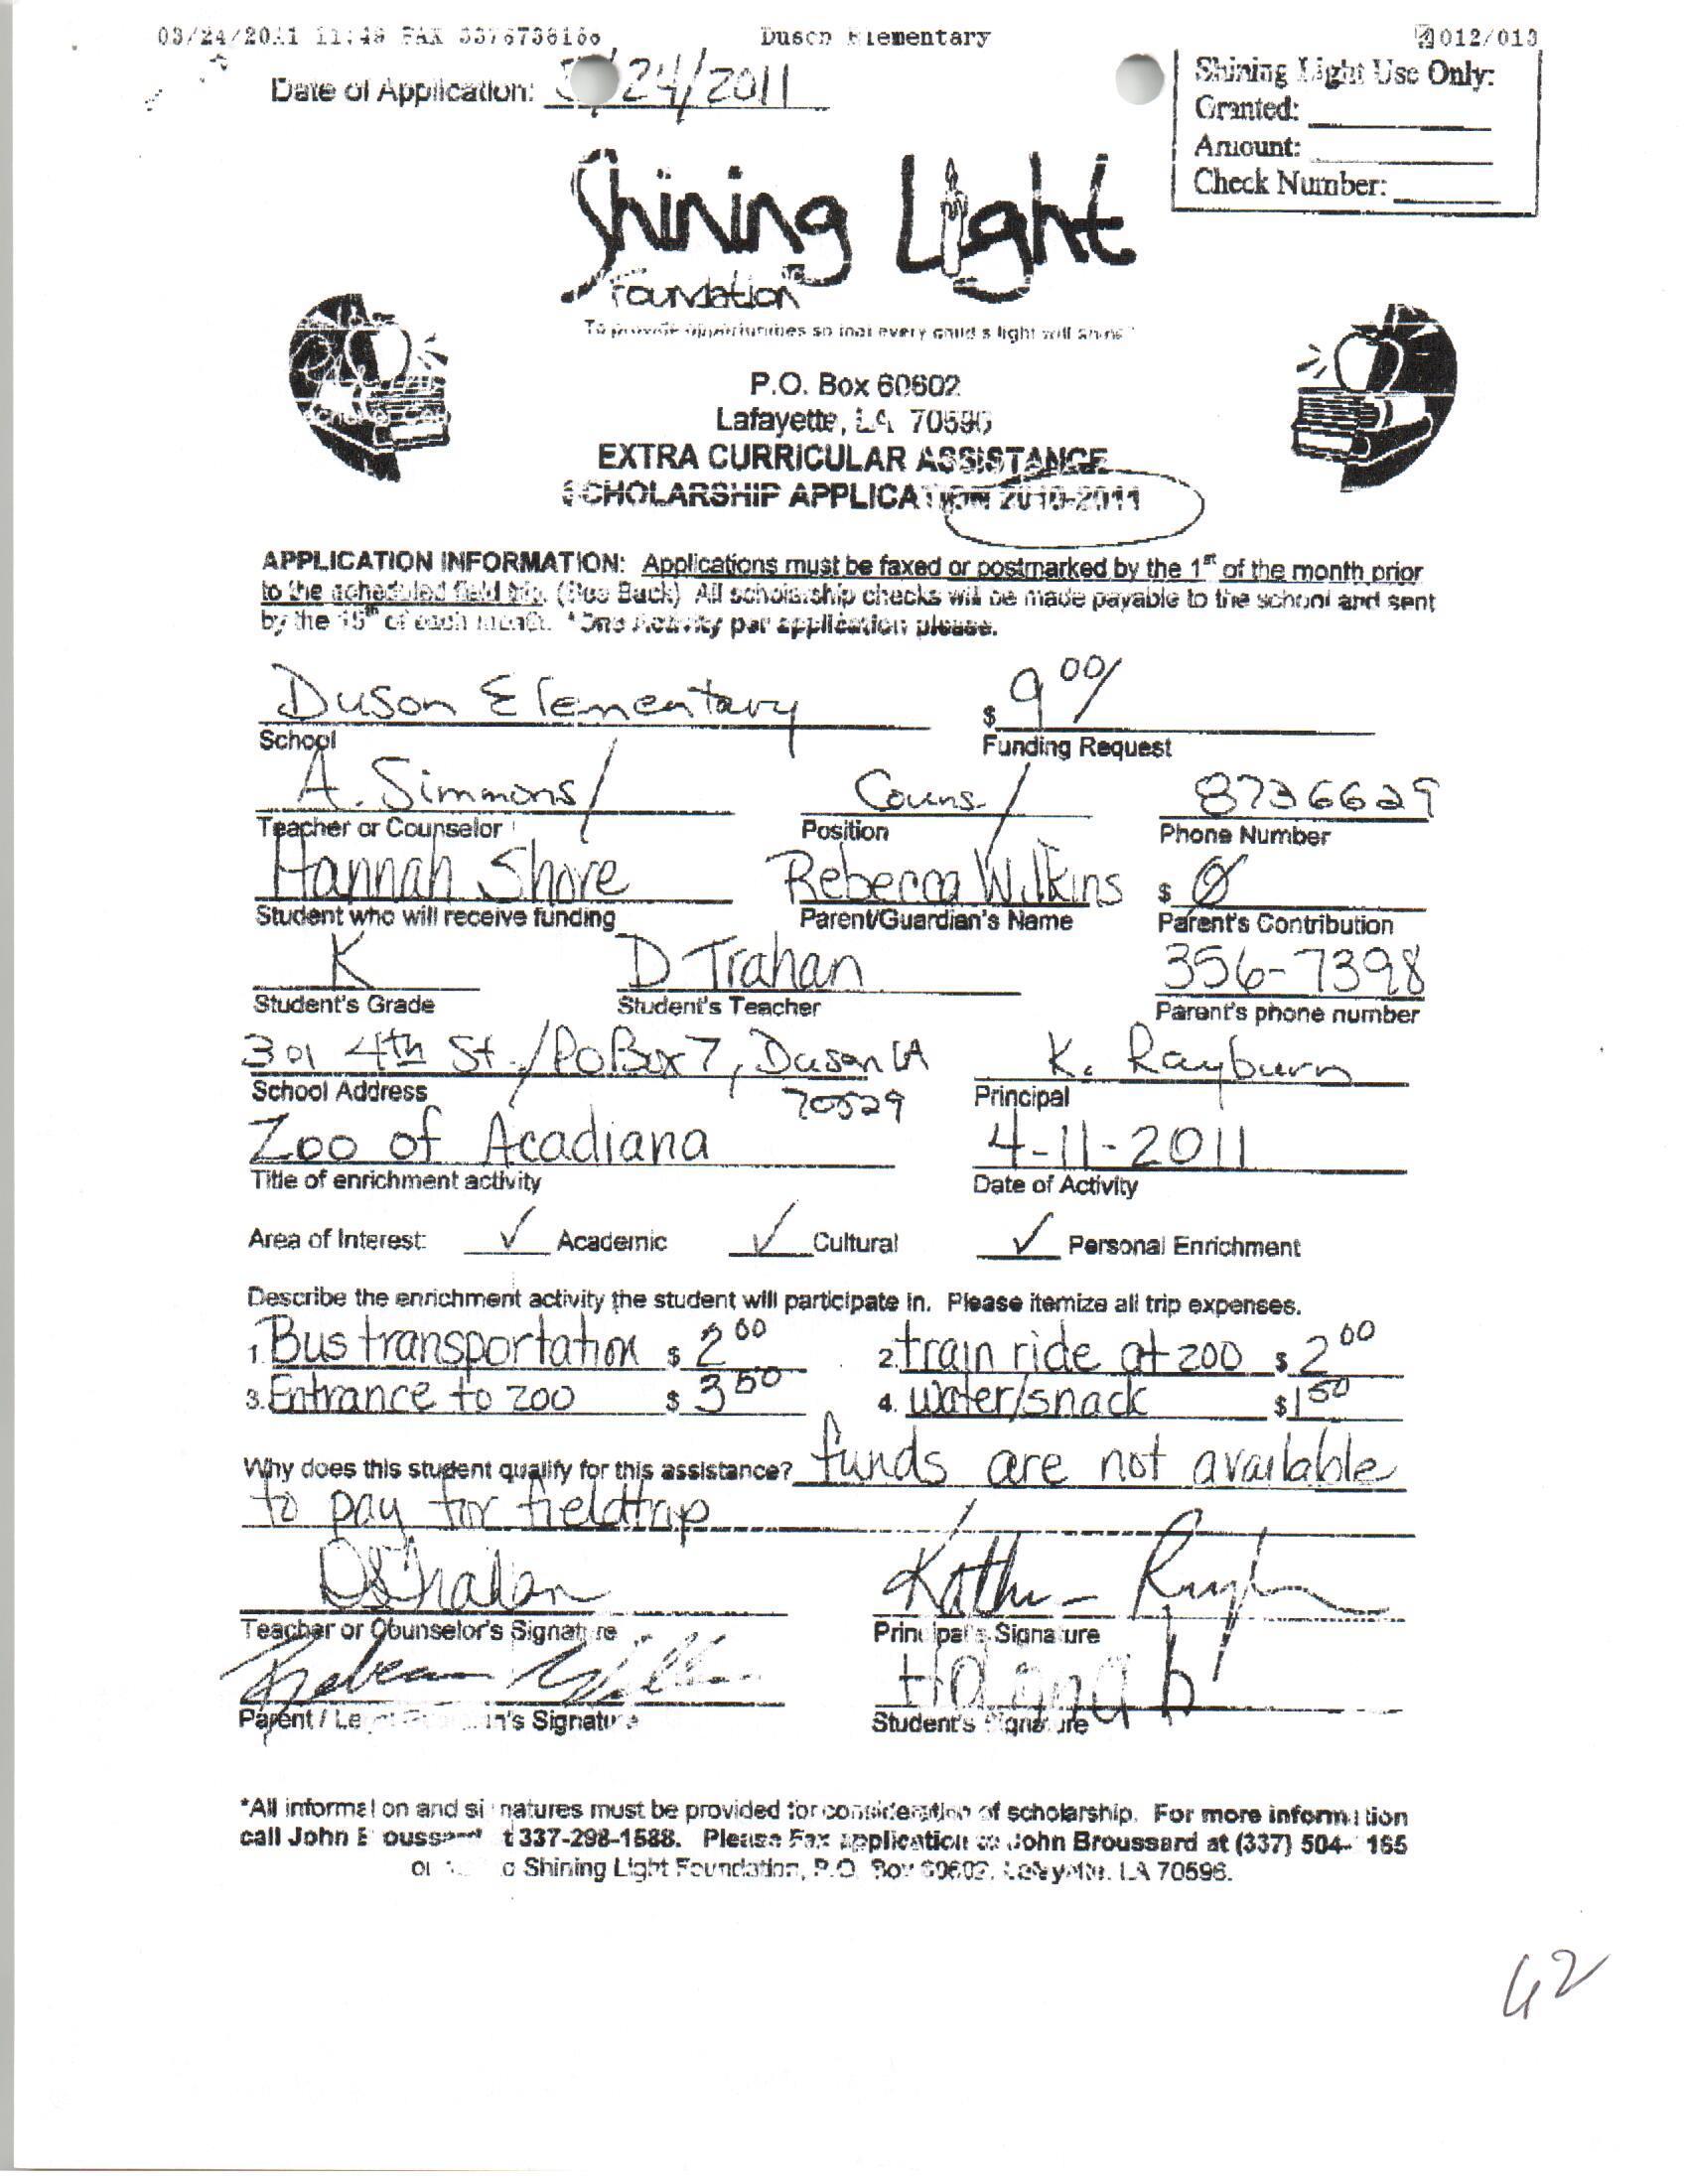 03/24/2011 11:49 FAX Duson Elementary 012/013
Date of Application: 24/2011
Shining Light Use Only:
Granted:
Amount:
Check Number:
Shining Light
Foundation
To provide opportunities so that every child's light will shine"
P.O. Box 60602
Lafayette, LA 70596
EXTRA CURRICULAR ASSISTANCE
SCHOLARSHIP APPLICATION 2010-2011
APPLICATION INFORMATION: Applications must be faxed or postmarked by the 1st of the month prior
to the scheduled field trip. (See Back) All scholarship checks will be made payable to the school and sent
by the 15th of each month. *One Activity per application please.
Duson Elementary $ 9 00/
School Funding Request
A. Simmons/ Couns. / 8736629
Teacher or Counselor Position Phone Number
Hannah Shore Rebecca Wilkins $ 0
Student who will receive funding Parent/Guardian's Name Parent's Contribution
K D Trahan 356-7398
Student's Grade Student's Teacher Parent's phone number
301 4th St./PO Box 7, Duson LA K. Rayburn
School Address 70529 Principal
Zoo of Acadiana 4-11-2011
Title of enrichment activity Date of Activity
Area of Interest: ✓ Academic ✓ Cultural ✓ Personal Enrichment
Describe the enrichment activity the student will participate in. Please itemize all trip expenses.
1. Bus transportation $ 2 00 2. train ride at zoo $ 2 00
3. Entrance to zoo $ 3 50 4. water/snack $ 1 50
Why does this student qualify for this assistance? funds are not available
to pay for fieldtrip
D Trahan
Teacher or Counselor's Signature Principal's Signature
Rebecca Hannah
Parent / Legal Guardian's Signature Student's Signature
*All information and signatures must be provided for consideration of scholarship. For more information
call John Broussard at 337-298-1588. Please Fax application to John Broussard at (337) 504- 165
Shining Light Foundation, P.O. Box 60602, Lafayette, LA 70596.
62